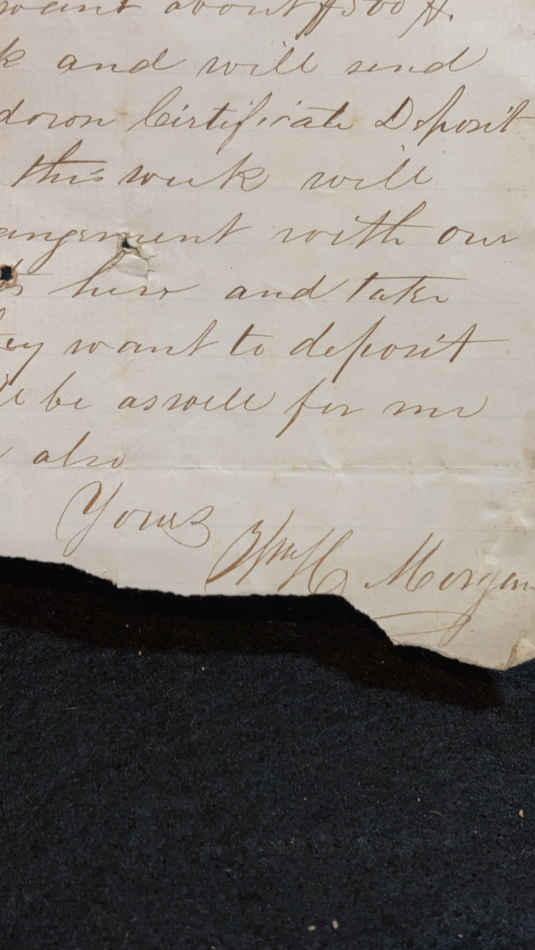 want about $500
k and will send
down Certificate Deposit
this week will
angement with our
ts here and take
ey want to deposit
l be aswell for me
also
Yours
Wm H Morgan